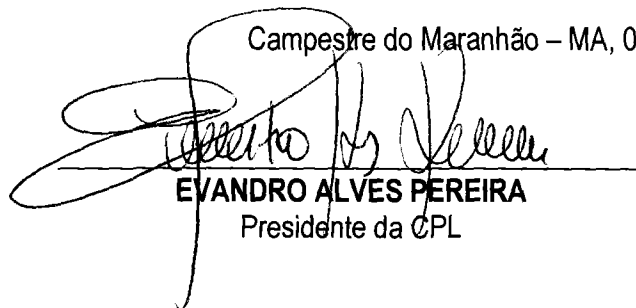 Campestre do Maranhão – MA, 0
EVANDRO ALVES PEREIRA
Presidente da CPL